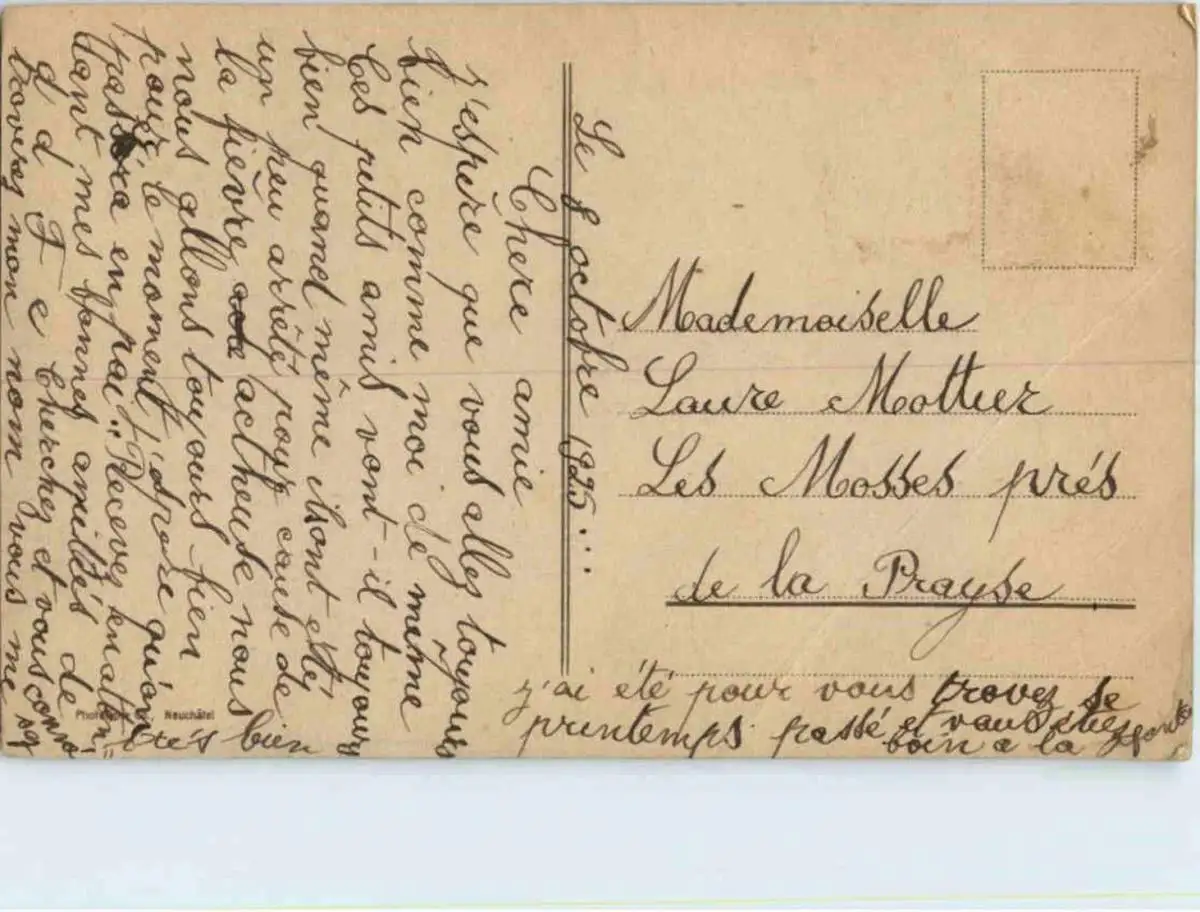 Le 8 octobre 1925...
Chère amie
j'espère que vous allez toujours
bien comme moi de même
Ces petits amis vont-il toujours
bien quand même ils ont été
un peu arrêté pour cause de
la fièvre actheuse nous
nous allons toujours bien
pour le moment j'espère qu'on
passera en paix. Recevez en atten=
dant mes bonnes amitiés de
d d F e Cherchez et vous
trouverez mon nom vous me
très bien
Mademoiselle
Laure Mottier
Les Mosses près
de la Prayse
j'ai été pour vous trovez se
printemps passé et vous étiez
loin a la
Neuchâtel